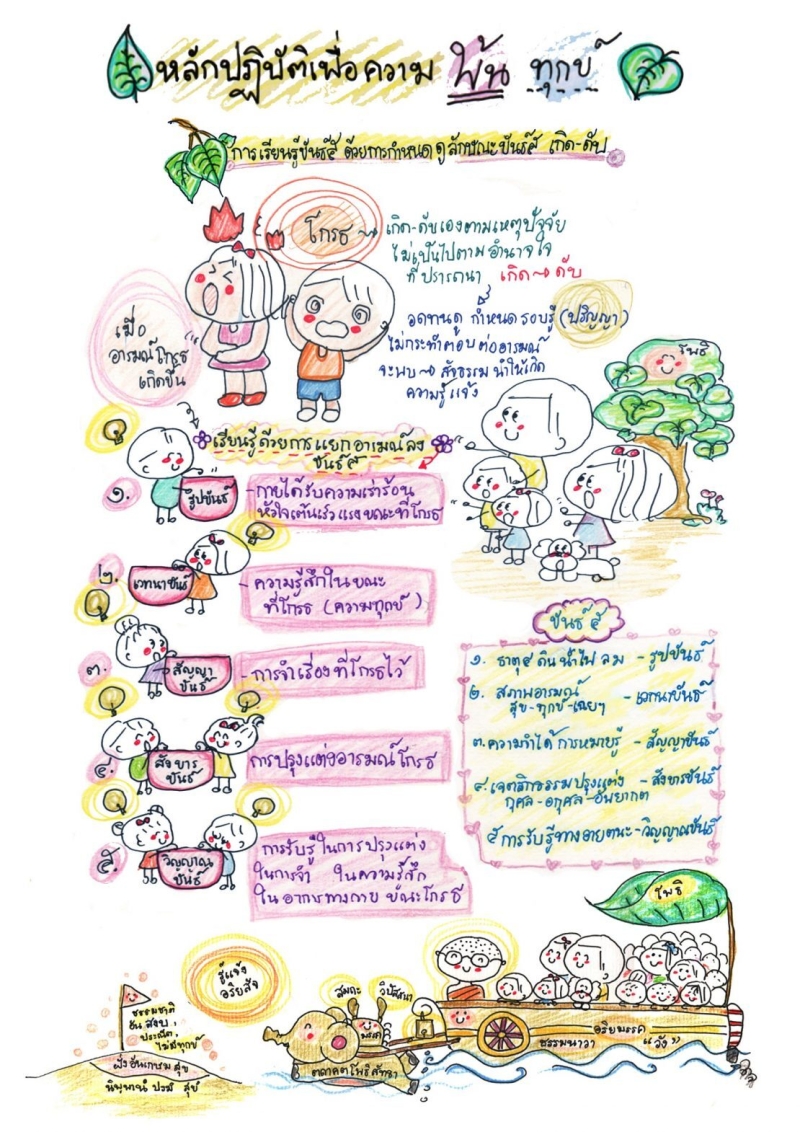 หลักปฏิบัติเพื่อความ พ้น ทุกข์
การเรียนรู้ขันธ์๕ ด้วยการกำหนด ดูลักษณะขันธ์๕ เกิด-ดับ
โกรธ
เกิด-ดับเองตามเหตุปัจจัย
ไม่เป็นไปตามอำนาจใจ
ที่ปรารถนา เกิด → ดับ
อดทนดู กำหนดรอบรู้ (ปริญญา)
ไม่กระทำตอบต่ออารมณ์
จะพบ → สัจธรรม นำให้เกิด
ความรู้แจ้ง
เมื่อ
อารมณ์โกรธ
เกิดขึ้น
โพธิ
เรียนรู้ด้วยการแยกอารมณ์ลง
ขันธ์๕
๑. รูปขันธ์
- กายได้รับความเร่าร้อน
หัวใจเต้นเร็วแรงขณะที่โกรธ
๒. เวทนาขันธ์
- ความรู้สึกในขณะ
ที่โกรธ (ความทุกข์)
๓. สัญญา
ขันธ์
- การจำเรื่องที่โกรธไว้
๔. สังขาร
ขันธ์
การปรุงแต่งอารมณ์โกรธ
๕. วิญญาณ
ขันธ์
การรับรู้ในการปรุงแต่ง
ในการจำ ในความรู้สึก
ในอาการทางกาย ขณะโกรธ
ขันธ์ ๕
๑. ธาตุ๔ ดิน น้ำ ไฟ ลม - รูปขันธ์
๒. สภาพอารมณ์ - เวทนาขันธ์
สุข-ทุกข์-เฉยๆ
๓. ความจำได้ การหมายรู้ - สัญญาขันธ์
๔. เจตสิกธรรมปรุงแต่ง - สังขารขันธ์
กุศล-อกุศล-อัพยากต
๕ การรับรู้ทางอายตนะ - วิญญาณขันธ์
โพธิ
รู้แจ้ง
อริยสัจ
สมถะ
วิปัสสนา
มรรค
ตถาคตโพธิสัทธา
ธรรมนาวา
อริยมรรค
"วัง"
ธรรมชาติ
อันสงบ,
ประณีต,
ไม่มีทุกข์
ฝั่งอันเกษมสุข
นิพฺพานํ ปรมํ สุขํ